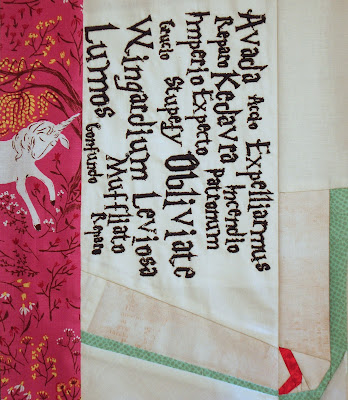 Avada Accio Expelliarmus
Reparo Kedavra Incendio
Imperio Expecto patronum
Crucio Stupefy Obliviate
Wingardium Leviosa
Lumos Muffliato
Confundo